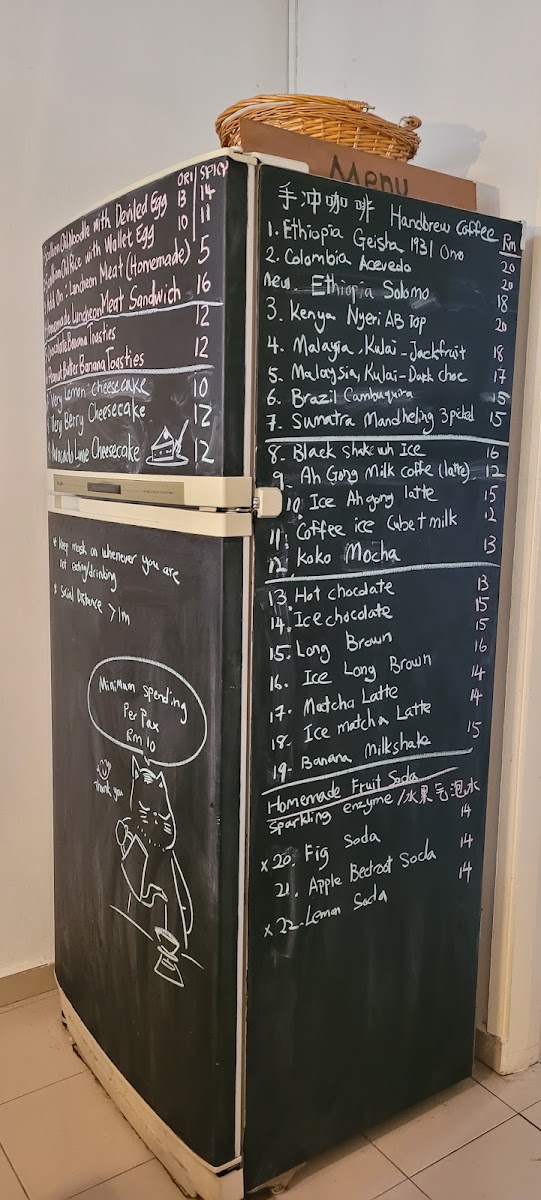 Menu
ORI | SPICY
Scallion Oil Noodle with Deviled Egg 13 14
Scallion Oil Rice with Wallet Egg 10 11
Add On: Luncheon Meat (Homemade) 5
Homemade Luncheon Meat Sandwich 16
Chocolate Banana Toasties 12
Peanut Butter Banana Toasties 12
Very Lemon Cheesecake 10
Very Berry Cheesecake 12
Avocado Lime Cheesecake 12
* Keep mask on whenever you are
not eating/drinking
* Social Distance > 1m
Minimum spending
Per Pax
Rm 10
Thank you
手冲咖啡 Handbrew Coffee Rm
1. Ethiopia Geisha 1931 Ono 20
2. Colombia Acevedo 20
New Ethiopia Solomo 18
3. Kenya Nyeri AB Top 20
4. Malaysia, Kulai - Jackfruit 18
5. Malaysia, Kulai - Dark choc 17
6. Brazil Cambuquira 15
7. Sumatra Mandheling 3 picked 15
8. Black shake wh Ice 16
9. Ah Gong Milk coffe (latte) 12
10. Ice Ah gong latte 15
11. Coffee ice Cube + milk 12
12. Koko Mocha 13
13. Hot chocolate 13
14. Ice chocolate 15
15. Long Brown 15
16. Ice Long Brown 16
17. Matcha Latte 14
18. Ice matcha Latte 14
19. Banana Milkshake 15
Homemade Fruit Soda
Sparkling enzyme / 水果气泡水
x 20. Fig Soda 14
21. Apple Beetroot Soda 14
x 22. Lemon Soda 14